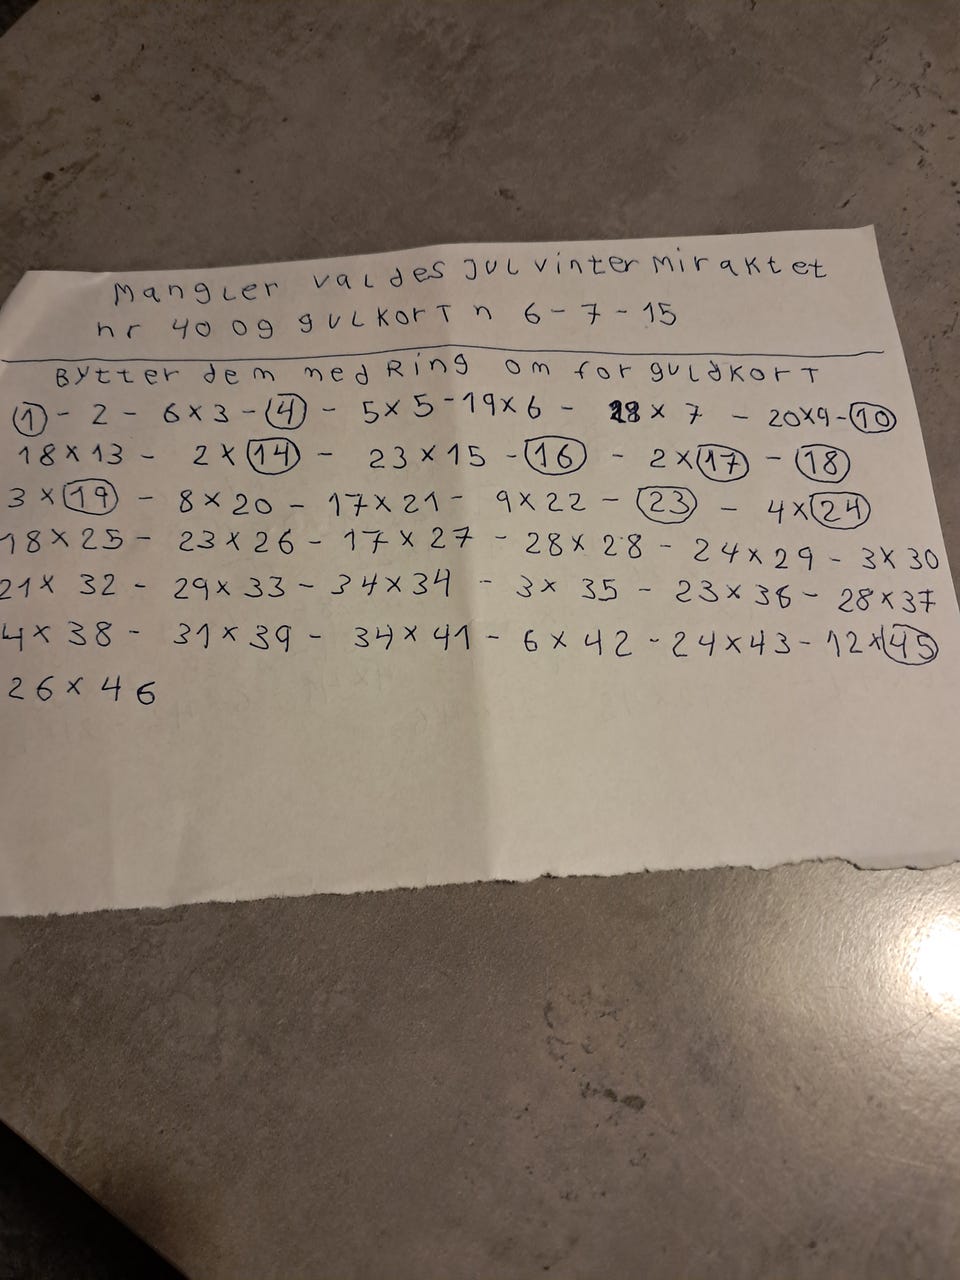 Mangler valdes jul vinter miraklet
nr 40 og gulkort n 6-7-15
Bytter dem med Ring om for guldkort
1 - 2 - 6x3 - 4 - 5x5 - 19x6 - 28x7 - 20x9 - 10
18x13 - 2x14 - 23x15 - 16 - 2x17 - 18
3x19 - 8x20 - 17x21 - 9x22 - 23 - 4x24
18x25 - 23x26 - 17x27 - 28x28 - 24x29 - 3x30
21x32 - 29x33 - 34x34 - 3x35 - 23x36 - 28x37
4x38 - 31x39 - 34x41 - 6x42 - 24x43 - 12x45
26x46